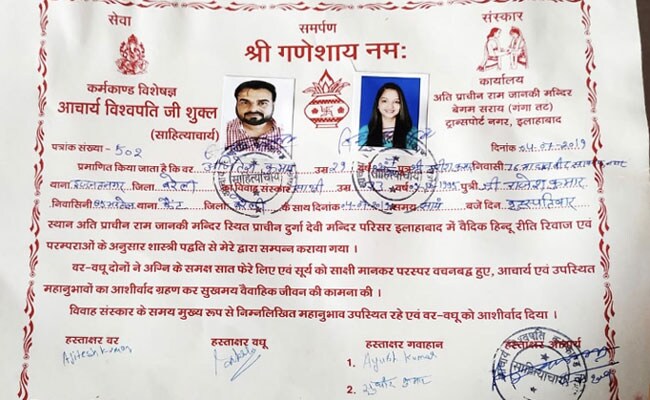 सेवा
समर्पण
संस्कार
श्री गणेशाय नम:
कर्मकाण्ड विशेषज्ञ
आचार्य विश्वपति जी शुक्ल
(साहित्याचार्य)
कार्यालय
अति प्राचीन राम जानकी मन्दिर
बेगम सराय (गंगा तट)
ट्रान्सपोर्ट नगर, इलाहाबाद
पत्रांक संख्या - 502
दिनांक
प्रमाणित किया जाता है कि वर उम्र 29 वर्ष निवासी
थाना इज्जतनगर जिला बरेली का विवाह संस्कार साक्षी उम्र वर्ष पुत्री श्री राजेश कुमार
निवासिनी थाना कैंट जिला बरेली के साथ दिनांक समय सायं बजे दिन बृहस्पतिवार
स्थान अति प्राचीन राम जानकी मन्दिर स्थित प्राचीन दुर्गा देवी मन्दिर परिसर इलाहाबाद में वैदिक हिन्दू रीति रिवाज एवं
परम्पराओं के अनुसार शास्त्री पद्वति से मेरे द्वारा सम्पन्न कराया गया ।
वर-वधू दोनों ने अग्नि के समक्ष सात फेरे लिए एवं सूर्य को साक्षी मानकर परस्पर वचनबद्व हुए, आचार्य एवं उपस्थित
महानुभावों का आशीर्वाद ग्रहण कर सुखमय वैवाहिक जीवन की कामना की ।
विवाह संस्कार के समय मुख्य रूप से निम्नलिखित महानुभाव उपस्थित रहे एवं वर-वधू को आशीर्वाद दिया ।
हस्ताक्षर वर
हस्ताक्षर वधू
हस्ताक्षर गवाहान
हस्ताक्षर आचार्य
Ajitesh kumar
1. Ayush kumar
2. कुमार
साहित्याचार्य